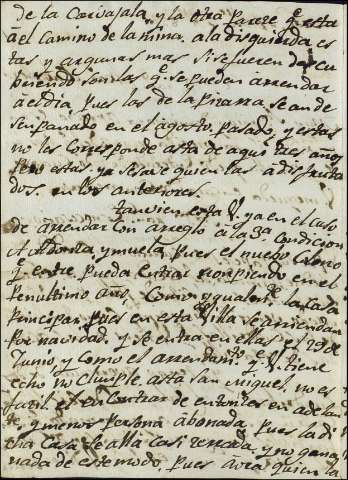 de la Carvajala, y la otra parece q.e esta
a el Camino de la mina. a la disquierda es
tas y argunas mas si se fueren descu
briendo son las q.e se pueden arrendar
a el dia, pues las de la Pizarra se an de
sempanado en el agosto pasado, y estas
no les corresponde asta de aqui tres años
pero estas, ya se save quien las a disfruta
do. en los anteriores.
tanvien esta V. ya en el caso
de arrendar con arreglo a la 3a. condicion
y muela pues el nuebo Colono
q.e entre pueda entrar rompiendo en el
penultimo año. Como ygualm.te la Casa
principar, pues en esta Villa se arriendan
por navidad. y se entra en ellas el 29 de
Junio y como el arrendam.to q.e V. tiene
echo no cumple asta san miguel, no es
facil el encontrar de entonzes en adelan
te, y menos persona abonada, pues la di
cha Casa se alla casi cerrada, y no gana
nada de este modo, pues aora quien la